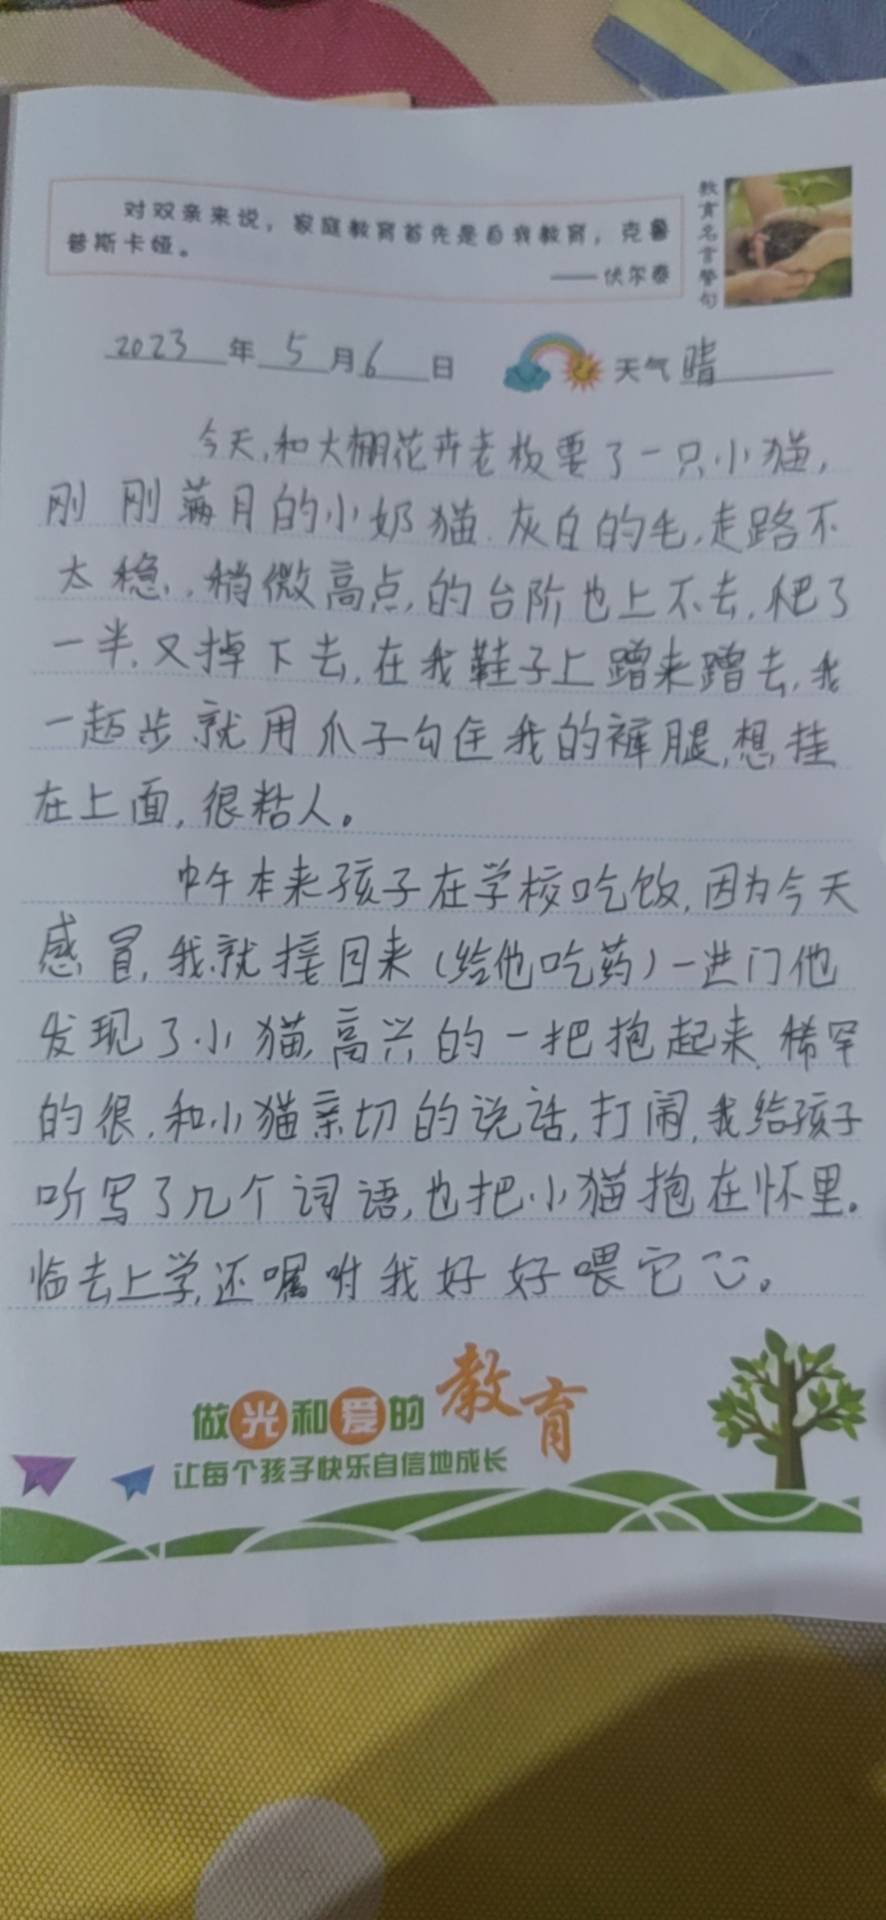 对双亲来说，家庭教育首先是自我教育，克鲁
普斯卡娅。
——伏尔泰
教育名言警句
2023年5月6日 天气 晴
今天,和大棚花卉老板要了一只小猫,
刚刚满月的小奶猫.灰白的毛,走路不
太稳,稍微高点,的台阶也上不去,爬了
一半,又掉下去,在我鞋子上蹭来蹭去,我
一起步就用爪子勾住我的裤腿,想挂
在上面,很粘人。
中午本来孩子在学校吃饭,因为今天
感冒,我就接回来(给他吃药)一进门他
发现了小猫,高兴的一把抱起来,稀罕
的很,和小猫亲切的说话,打闹,我给孩子
听写了几个词语,也把小猫抱在怀里。
临去上学,还嘱咐我好好喂它。
做光和爱的教育
让每个孩子快乐自信地成长